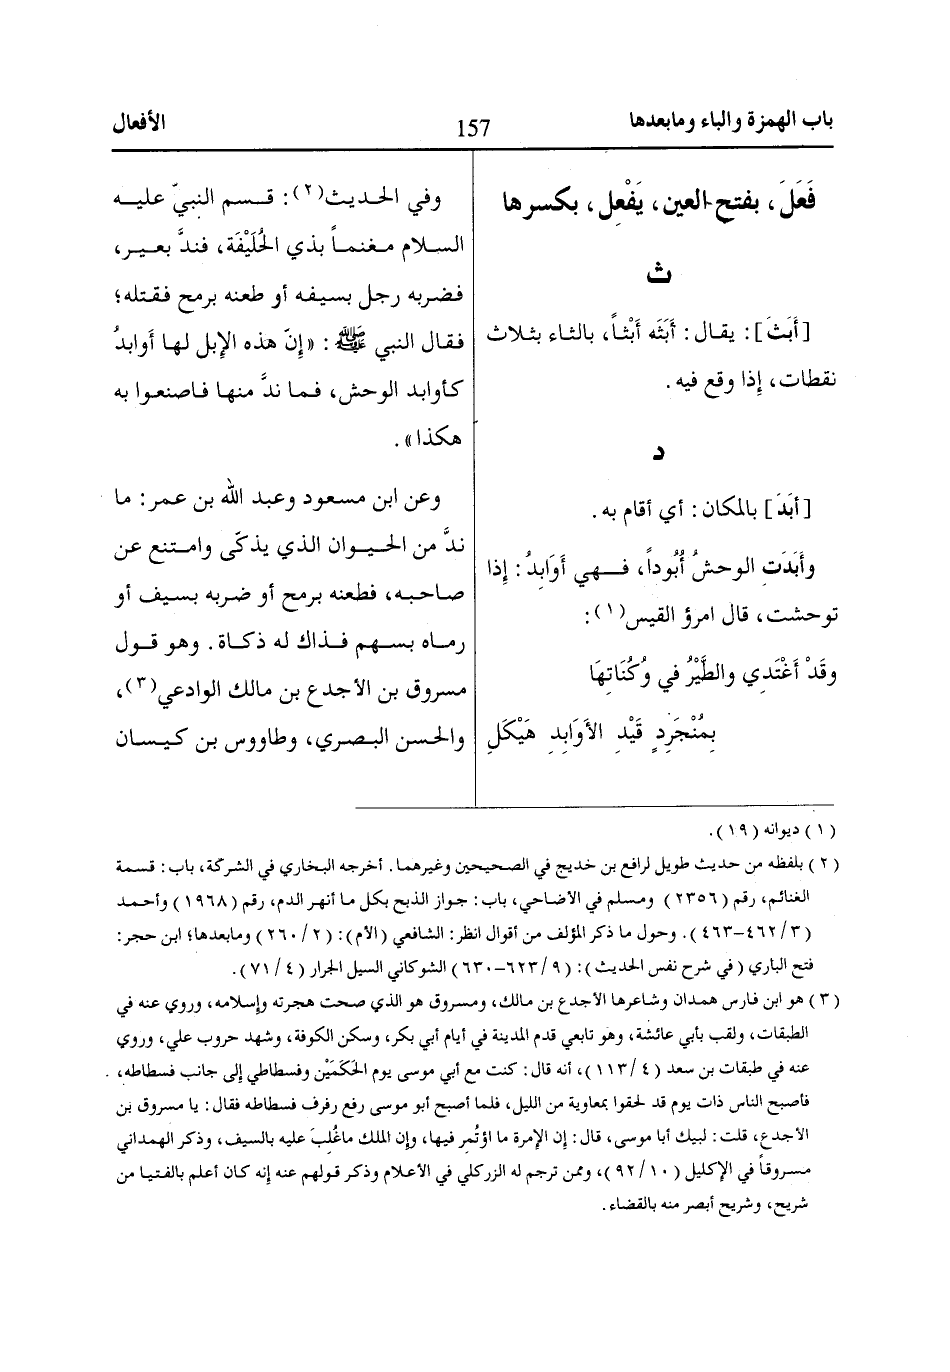 باب الهمزة والباء ومابعدها
157
الأفعال
فَعَلَ، بفتح العين، يَفْعِل، بكسرها
ث
[أَبَثَ]: يقال: أَبَثَه أَبْثاً، بالثاء بثلاث
نقطات، إِذا وقع فيه.
د
[أبَدَ] بالمكان: أي أقام به.
وأَبَدَتِ الوحشُ أُبُوداً، فـهي أَوَابِدُ: إِذا
توحشت، قال امرؤ القيس(١):
وقَدْ أَغْتَدِي والطَّيْرُ في وُكُنَاتِهَا
بِمُنْجَرِدٍ قَيْدِ الأَوَابِدِ هَيْكَلِ
وفي الحديث(٢): قسم النبيّ عليه
السلام مغنماً بذي الحُلَيْفَة، فندَّ بعير،
فضربه رجل بسيفه أو طعنه برمح فقتله؛
فقال النبي ﷺ: «إِنّ هذه الإبل لها أوابدُ
كأوابد الوحش، فما ندَّ منها فاصنعوا به
هكذا».
وعن ابن مسعود وعبد الله بن عمر: ما
ندَّ من الحيوان الذي يذكّى وامتنع عن
صاحبه، فطعنه برمح أو ضربه بسيف أو
رماه بسهم فذاك له ذكاة. وهو قول
مسروق بن الأجدع بن مالك الوادعي(٣)،
والحسن البصري، وطاووس بن كيسان
(١) ديوانه (١٩).
(٢) بلفظه من حديث طويل لرافع بن خديج في الصحيحين وغيرهما. أخرجه البخاري في الشركة، باب: قسمة
الغنائم، رقم (٢٣٥٦) ومسلم في الأضاحي، باب: جواز الذبح بكل ما أنهر الدم، رقم (١٩٦٨) وأحمد
(٣/٤٦٢-٤٦٣). وحول ما ذكر المؤلف من أقوال انظر: الشافعي (الأم): (٢/٢٦٠) ومابعدها؛ ابن حجر:
فتح الباري (في شرح نفس الحديث): (٩/٦٢٣-٦٣٠) الشوكاني السيل الجرار (٤/٧١).
(٣) هو ابن فارس همدان وشاعرها الأجدع بن مالك، ومسروق هو الذي صحت هجرته وإسلامه، وروي عنه في
الطبقات، ولقب بأبي عائشة، وهو تابعي قدم المدينة في أيام أبي بكر، وسكن الكوفة، وشهد حروب علي، وروي
عنه في طبقات بن سعد (٤/١١٣)، أنه قال: كنت مع أبي موسى يوم الحَكَمَيْن وفسطاطي إلى جانب فسطاطه،
فأصبح الناس ذات يوم قد لحقوا بمعاوية من الليل، فلما أصبح أبو موسى رفع رفرف فسطاطه فقال: يا مسروق بن
الأجدع، قلت: لبيك أبا موسى، قال: إن الإمرة ما اؤتُمر فيها، وإن الملك ماغُلبَ عليه بالسيف، وذكر الهمداني
مسروقاً في الإكليل (١٠/٩٢)، وممن ترجم له الزركلي في الأعلام وذكر قولهم عنه إنه كان أعلم بالفتيا من
شريح، وشريح أبصر منه بالقضاء.